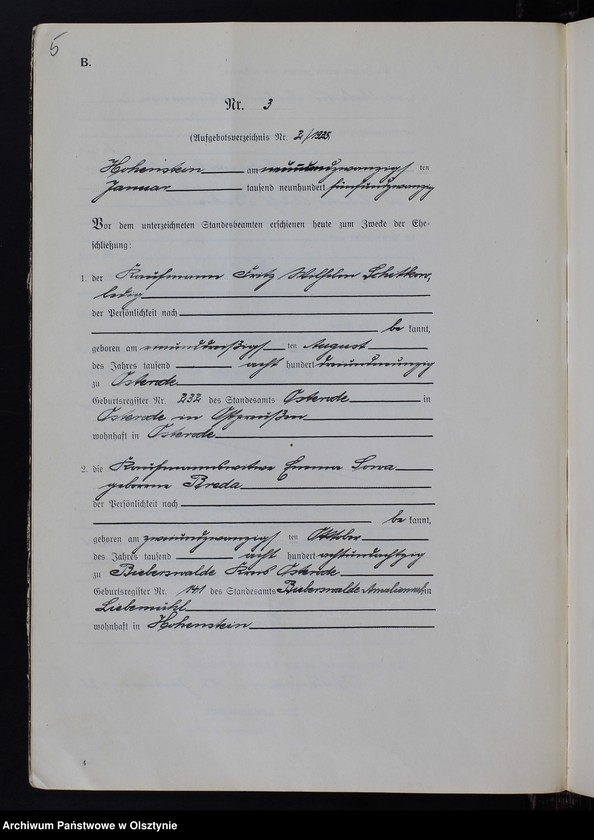 5
B.
Nr. 3
(Aufgebotsverzeichnis Nr. 2/1925
Hohenstein am neunundzwanzigs ten
Januar tausend neunhundert fünfundzwanzig
Vor dem unterzeichneten Standesbeamten erschienen heute zum Zwecke der Ehe-
schließung:
1. der Kaufmann Fritz Wilhelm
ledig
der Persönlichkeit nach
be kannt,
geboren am einunddreißigs ten August
des Jahres tausend acht hundert dreiundneunzig
zu Osterode
Geburtsregister Nr. 232 des Standesamts Osterode in
Osterode in Ostpreußen
wohnhaft in Osterode
2. die Kaufmannswitwe Emma Sowa
geborene Breda
der Persönlichkeit nach
be kannt,
geboren am zweiundzwanzigs ten Oktober
des Jahres tausend acht hundert achtundachtzig
zu Bieberswalde Kreis Osterode
Geburtsregister Nr. 141 des Standesamts Bieberswalde in
Liebemühl
wohnhaft in Hohenstein
Archiwum Państwowe w Olsztynie